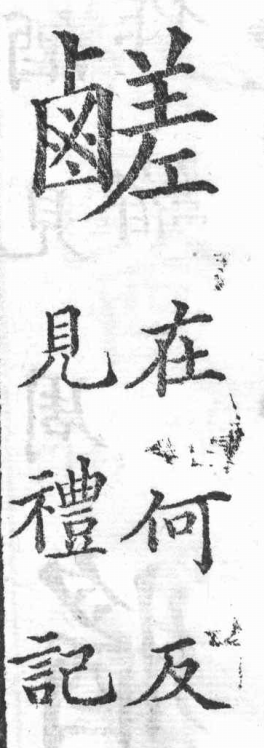 鹺
在何反
見禮記